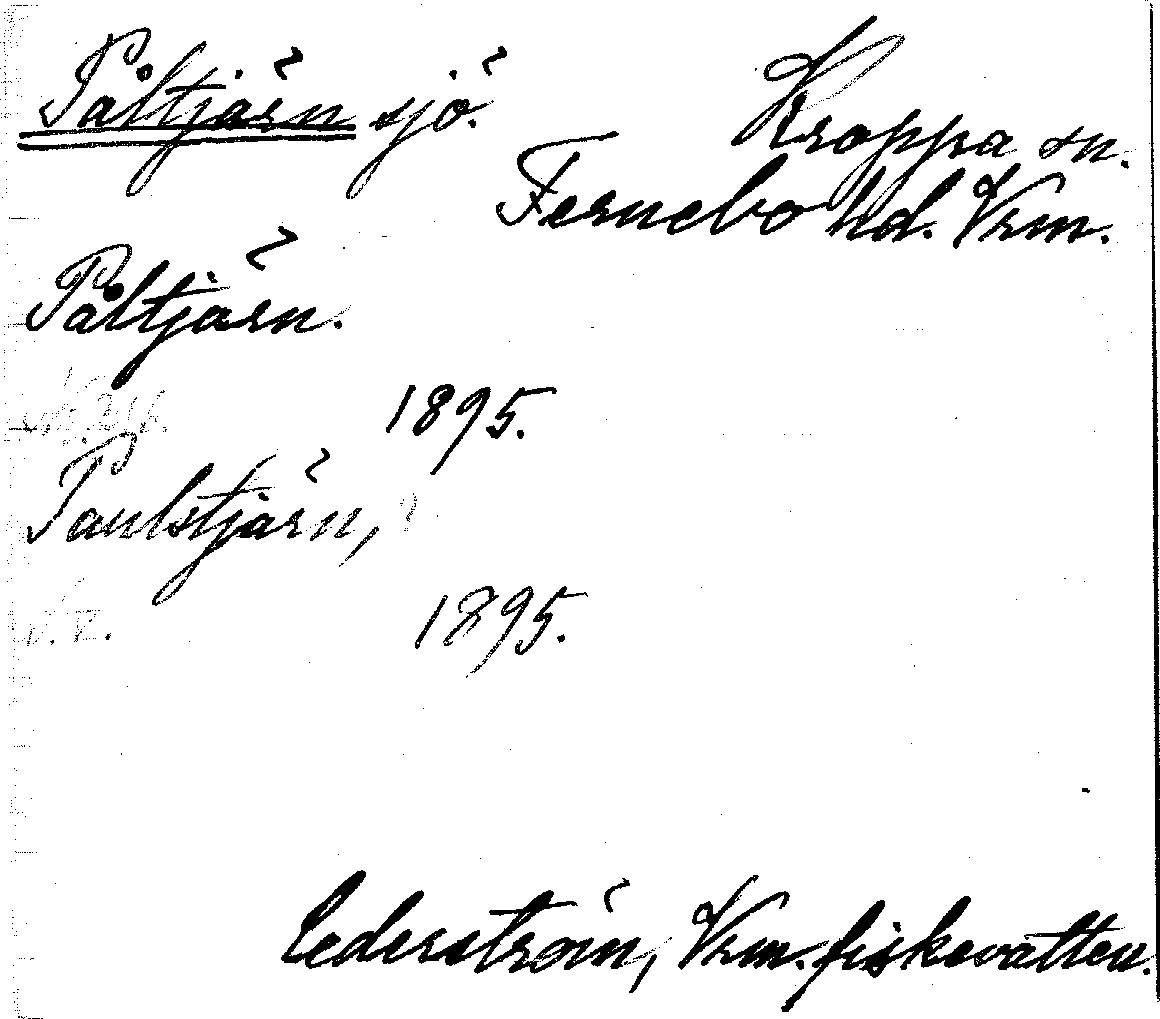 Påltjärn sjö. Kroppa sn.
Fernebo hd. Vrm.
Påltjärn.
1895.
Paulstjärn,
1895.
Cederström, Vrm. fiskevatten.